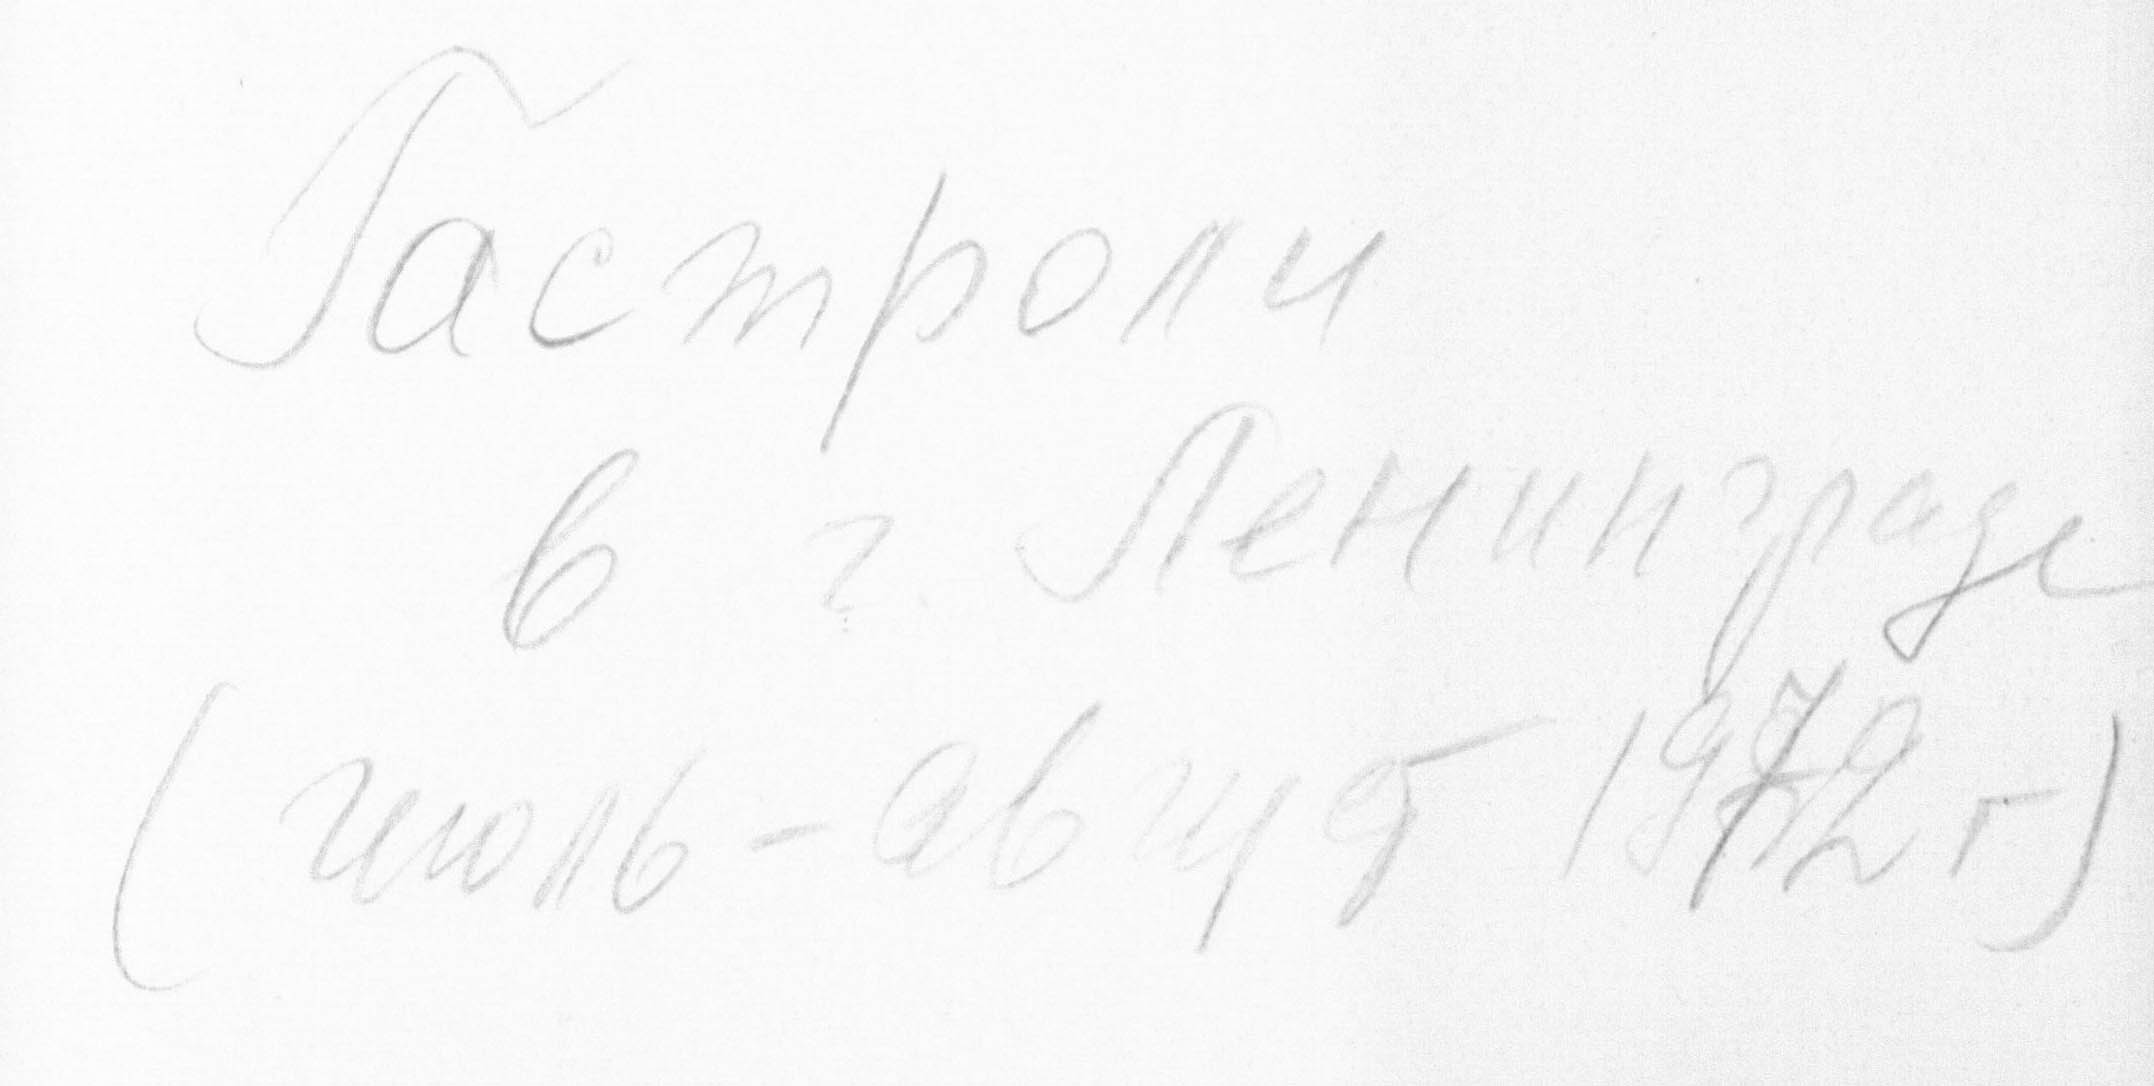 Гастроли
в г. Ленинграде
(июль-август г)